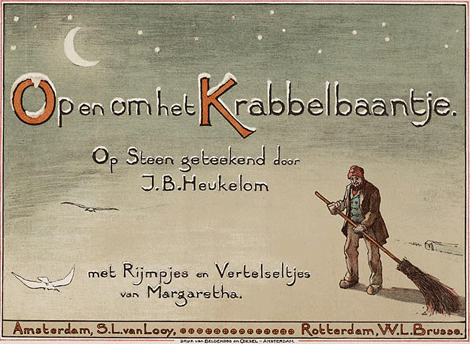 Op en om het Krabbelbaantje.
Op Steen geteekend door
J.B.Heukelom
met Rijmpjes en Vertelseltjes
van Margaretha.
Amsterdam, S.L.van Looy, Rotterdam, W.L.Brusse.
DRUK VAN BELDEROS EN COESEL - AMSTERDAM.